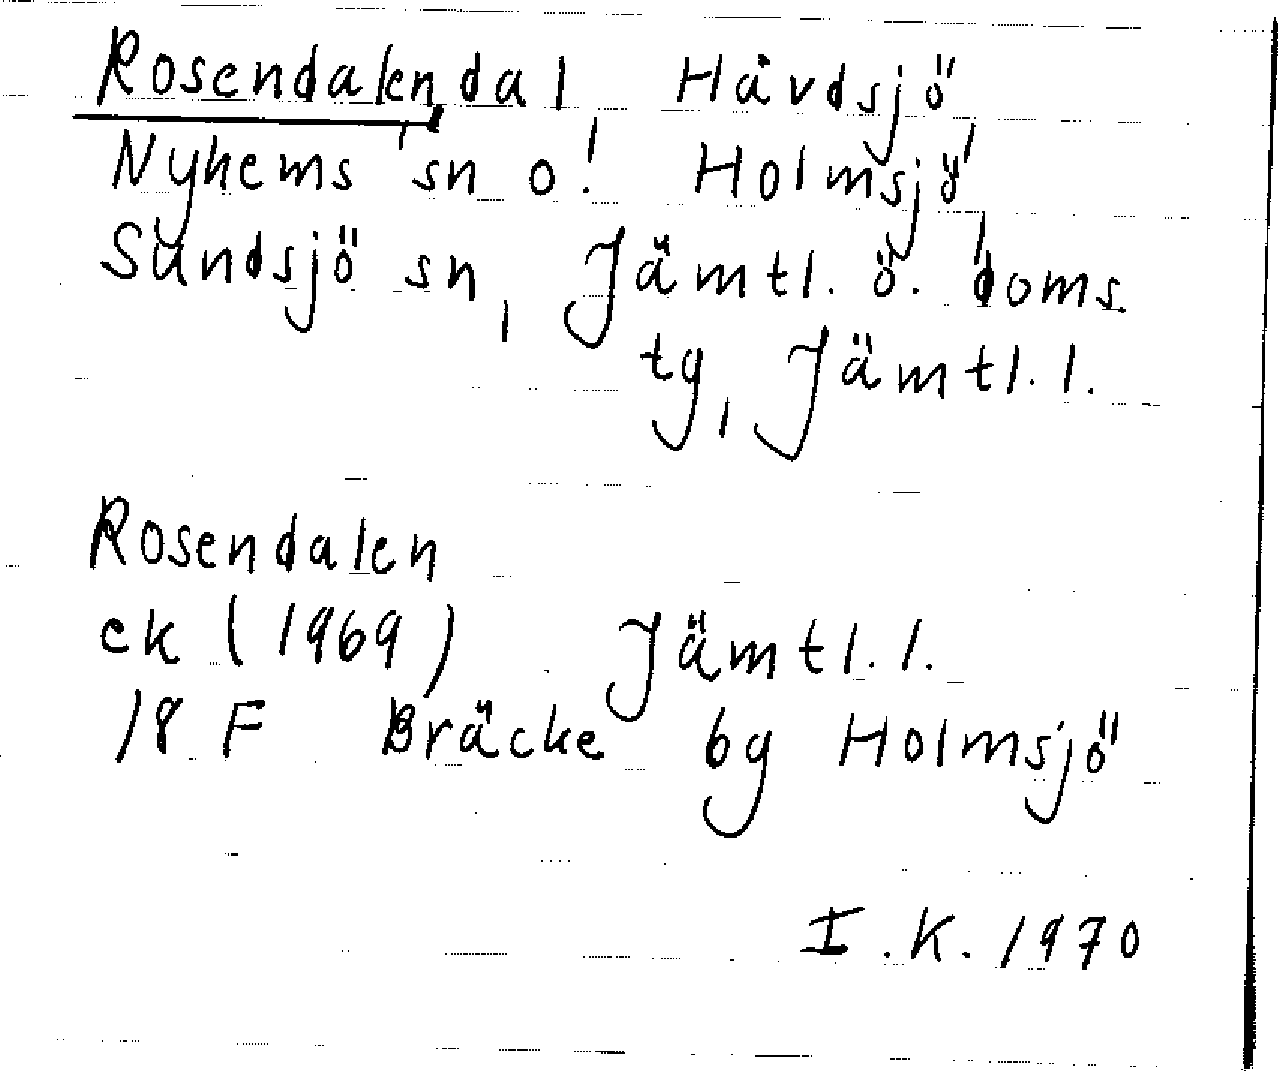 Rosendalen, dal, Håvdsjö,
Nyhems sn o. Holmsjö,
Sundsjö sn, Jämtl. ö. doms.
tg, Jämtl. l.
Rosendalen
ek (1969) Jämtl. l.
18 F Bräcke bg Holmsjö
I.K. 1970